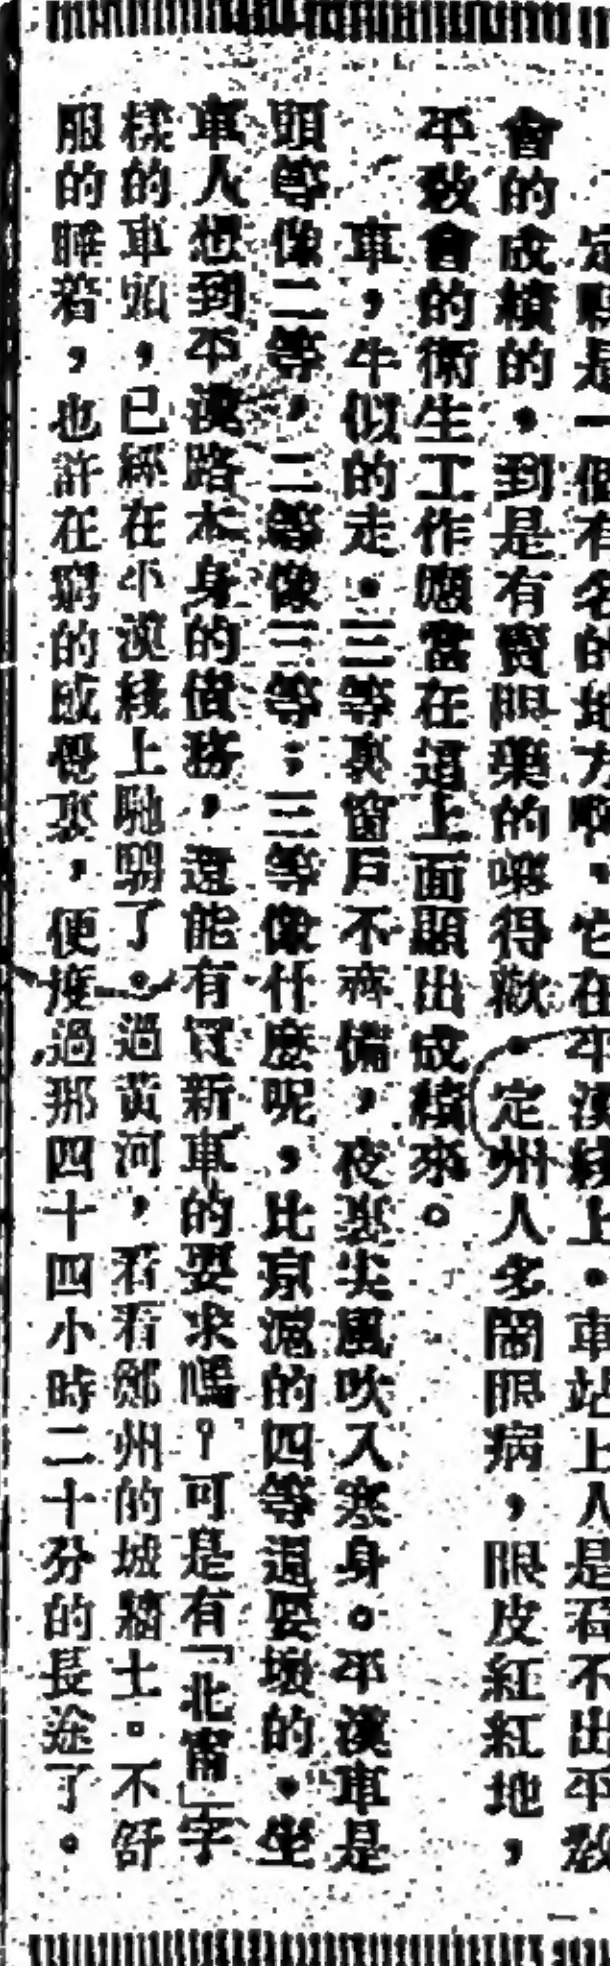 定縣是一個有名的地方啊，它在平漢綫上。車站上人是看不出平敎
會的成績的，到是有賣眼藥的嚷得歡。定州人多鬧眼病，眼皮紅紅地，
平敎會的衛生工作應當在這上面顯出成績來。
車，牛似的走。三等裏窗戶不齊備，夜裏尖風吹入寒身。平漢車是
頭等像二等，二等像三等；三等像什麼呢，比京滬的四等還要壞的。坐
車人想到平漢路本身的債務，還能有買新車的要求嗎？可是有「北甯」字
樣的車頭，已經在平漢綫上馳騁了。過黃河，看看鄭州的城牆土。不舒
服的睡着，也許在窮的感覺裏，便度過那四十四小時二十分的長途了。